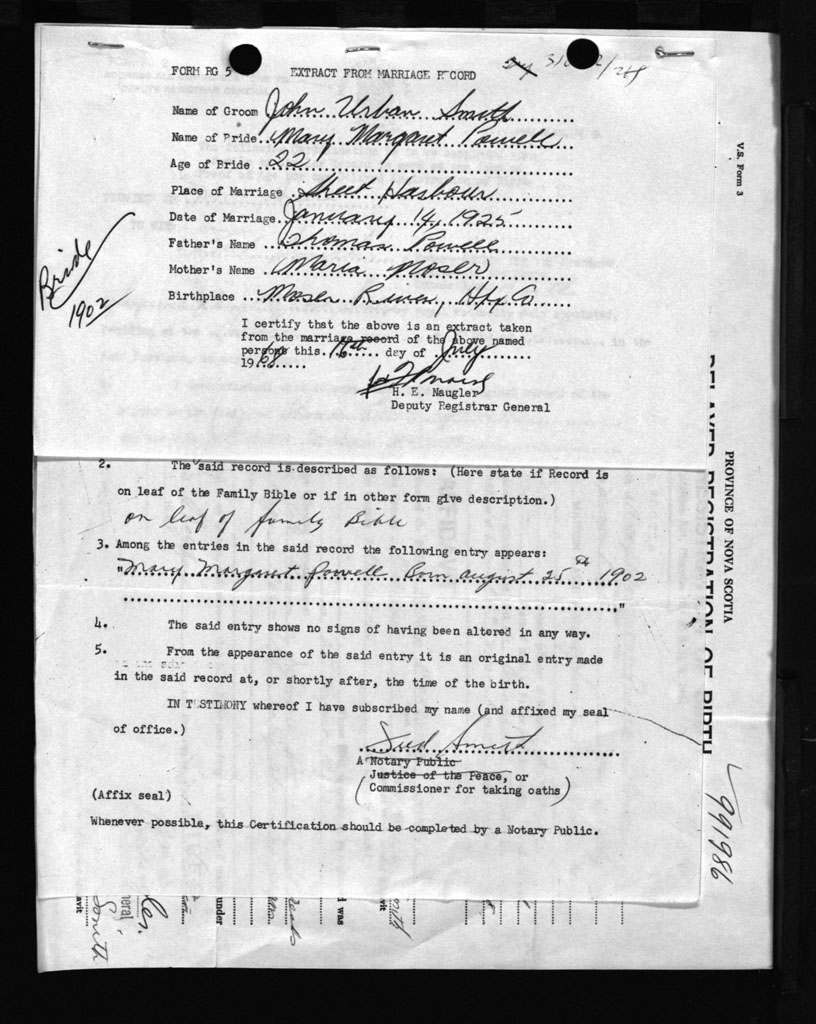 FORM RG 5 EXTRACT FROM MARRIAGE RECORD
Name of Groom John Urban Smith
Name of Bride Mary Margaret Powell
Age of Bride 22
Place of Marriage Sheet Harbour
Date of Marriage January 14, 1925
Father's Name Thomas Powell
Mother's Name Maria Moser
Birthplace Moser River, Hfx Co.
Bride
1902
I certify that the above is an extract taken
from the marriage record of the above named
persons this 16th day of July
1968
H. E. Naugler
Deputy Registrar General
2. The said record is described as follows: (Here state if Record is
on leaf of the Family Bible or if in other form give description.)
on leaf of family Bible
3. Among the entries in the said record the following entry appears:
"Mary Margaret Powell Born august 25th 1902
"
4. The said entry shows no signs of having been altered in any way.
5. From the appearance of the said entry it is an original entry made
in the said record at, or shortly after, the time of the birth.
IN TESTIMONY whereof I have subscribed my name (and affixed my seal
of office.)
Fred Smith
A Notary Public
Justice of the Peace, or
(Commissioner for taking oaths)
(Affix seal)
Whenever possible, this Certification should be completed by a Notary Public.
V.S. Form 3
PROVINCE OF NOVA SCOTIA
DELAYED REGISTRATION OF BIRTH
991986
under
I was
Smith